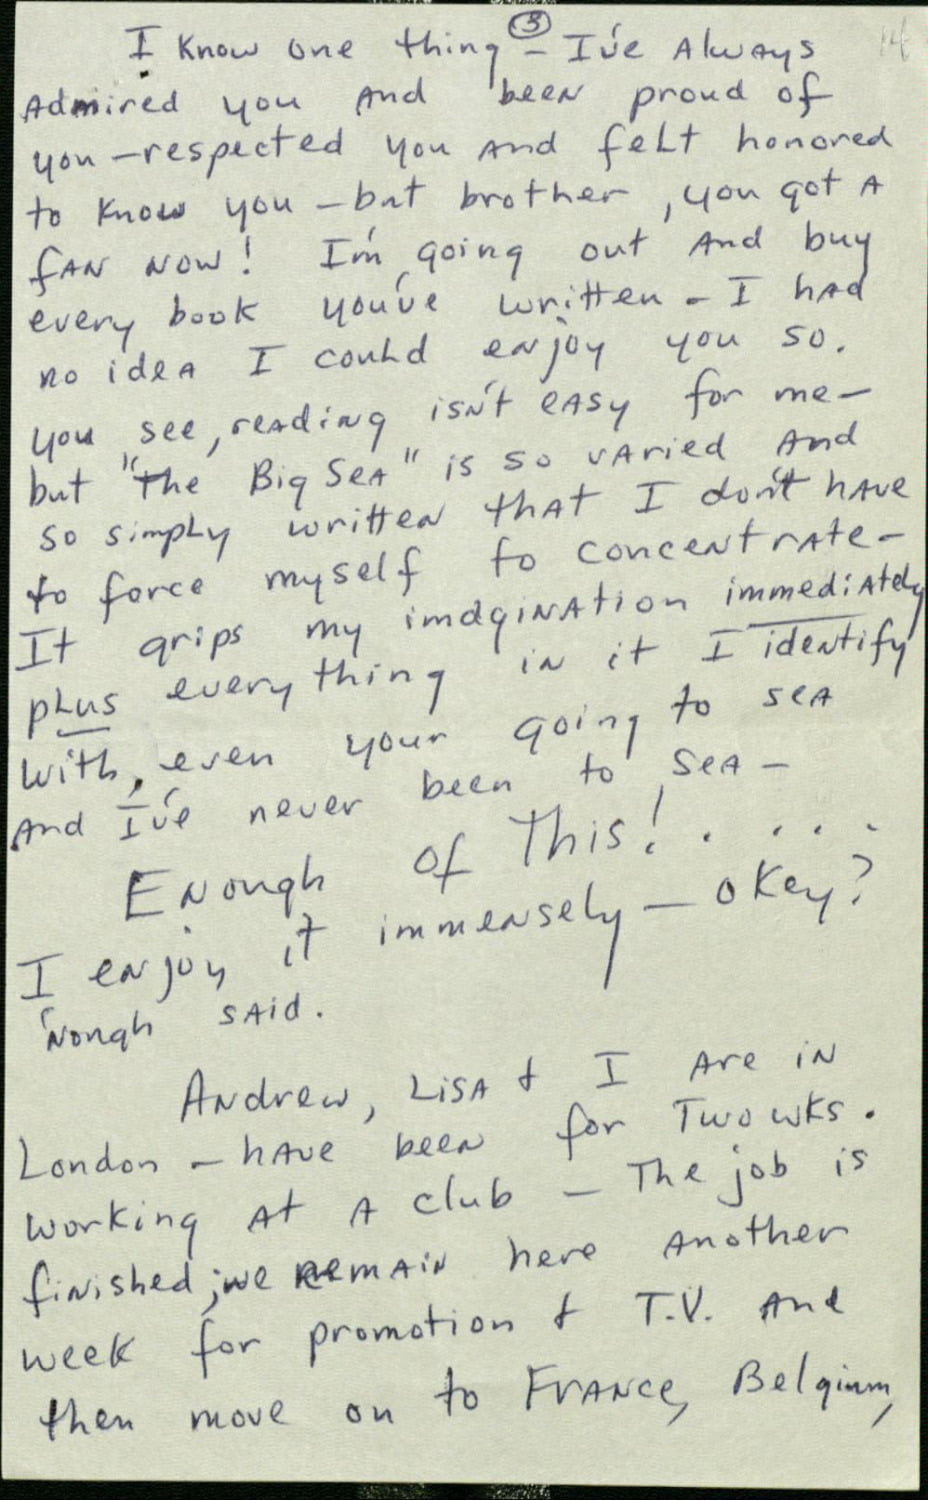 3
14
I know one thing – I've Always
Admired you And been proud of
you – respected you And felt honored
to know you – but brother, you got A
fAN NOW! I'm going out And buy
every book you've written – I hAd
no ideA I could enjoy you so.
you see, reading isn't eAsy for me –
but "The Big SeA" is so vAried And
so simply written thAt I don't hAve
to force myself to concentrAte –
It grips my imAginAtion immediAtely
plus everything in it I identify
with, even your going to seA
And I've never been to seA –
Enough of This! . . . .
I enjoy it immensely – okey?
'Nough sAid.
Andrew, LisA & I Are in
London – hAve been for Two wks.
working At A club – The job is
finished; we remAin here Another
week for promotion & T.V. And
then move on to FrANce, Belgium,